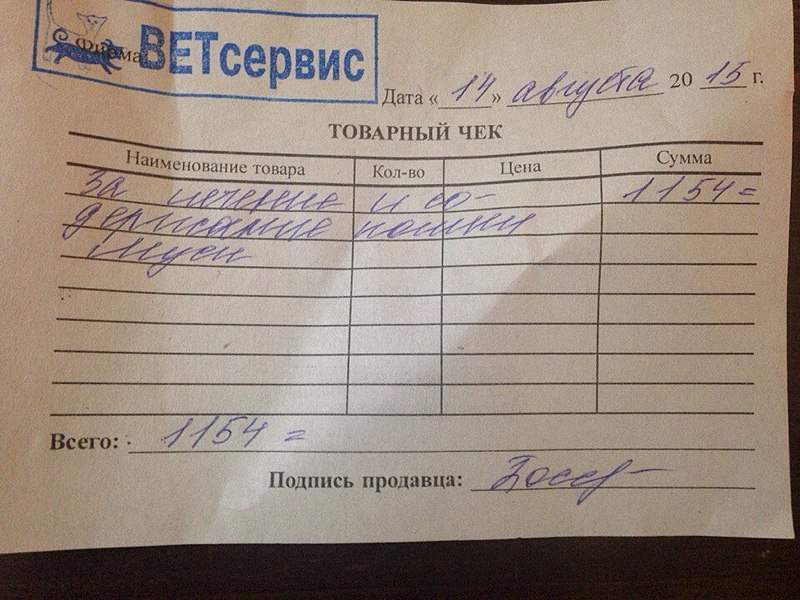 Фирма ВЕТсервис
Дата «14» августа 20 15 г.
ТОВАРНЫЙ ЧЕК
Наименование товара Кол-во Цена Сумма
За лечение и со- 1154=
держание кошки
Муси
Всего: 1154=
Подпись продавца: